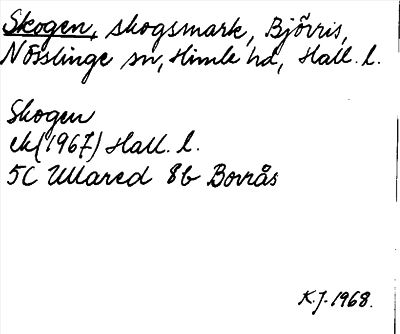 Skogen, skogsmark, Björris,
Nösslinge sn, Himle hd, Hall. l.
Skogen
ek(1967) Hall. l.
5C Ullared 8b Borrås
K.J. 1968.